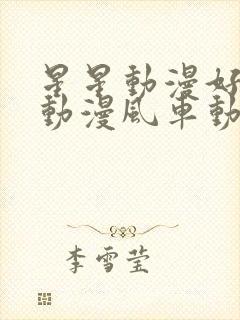 星星動漫好
動漫風車動
李雪莹